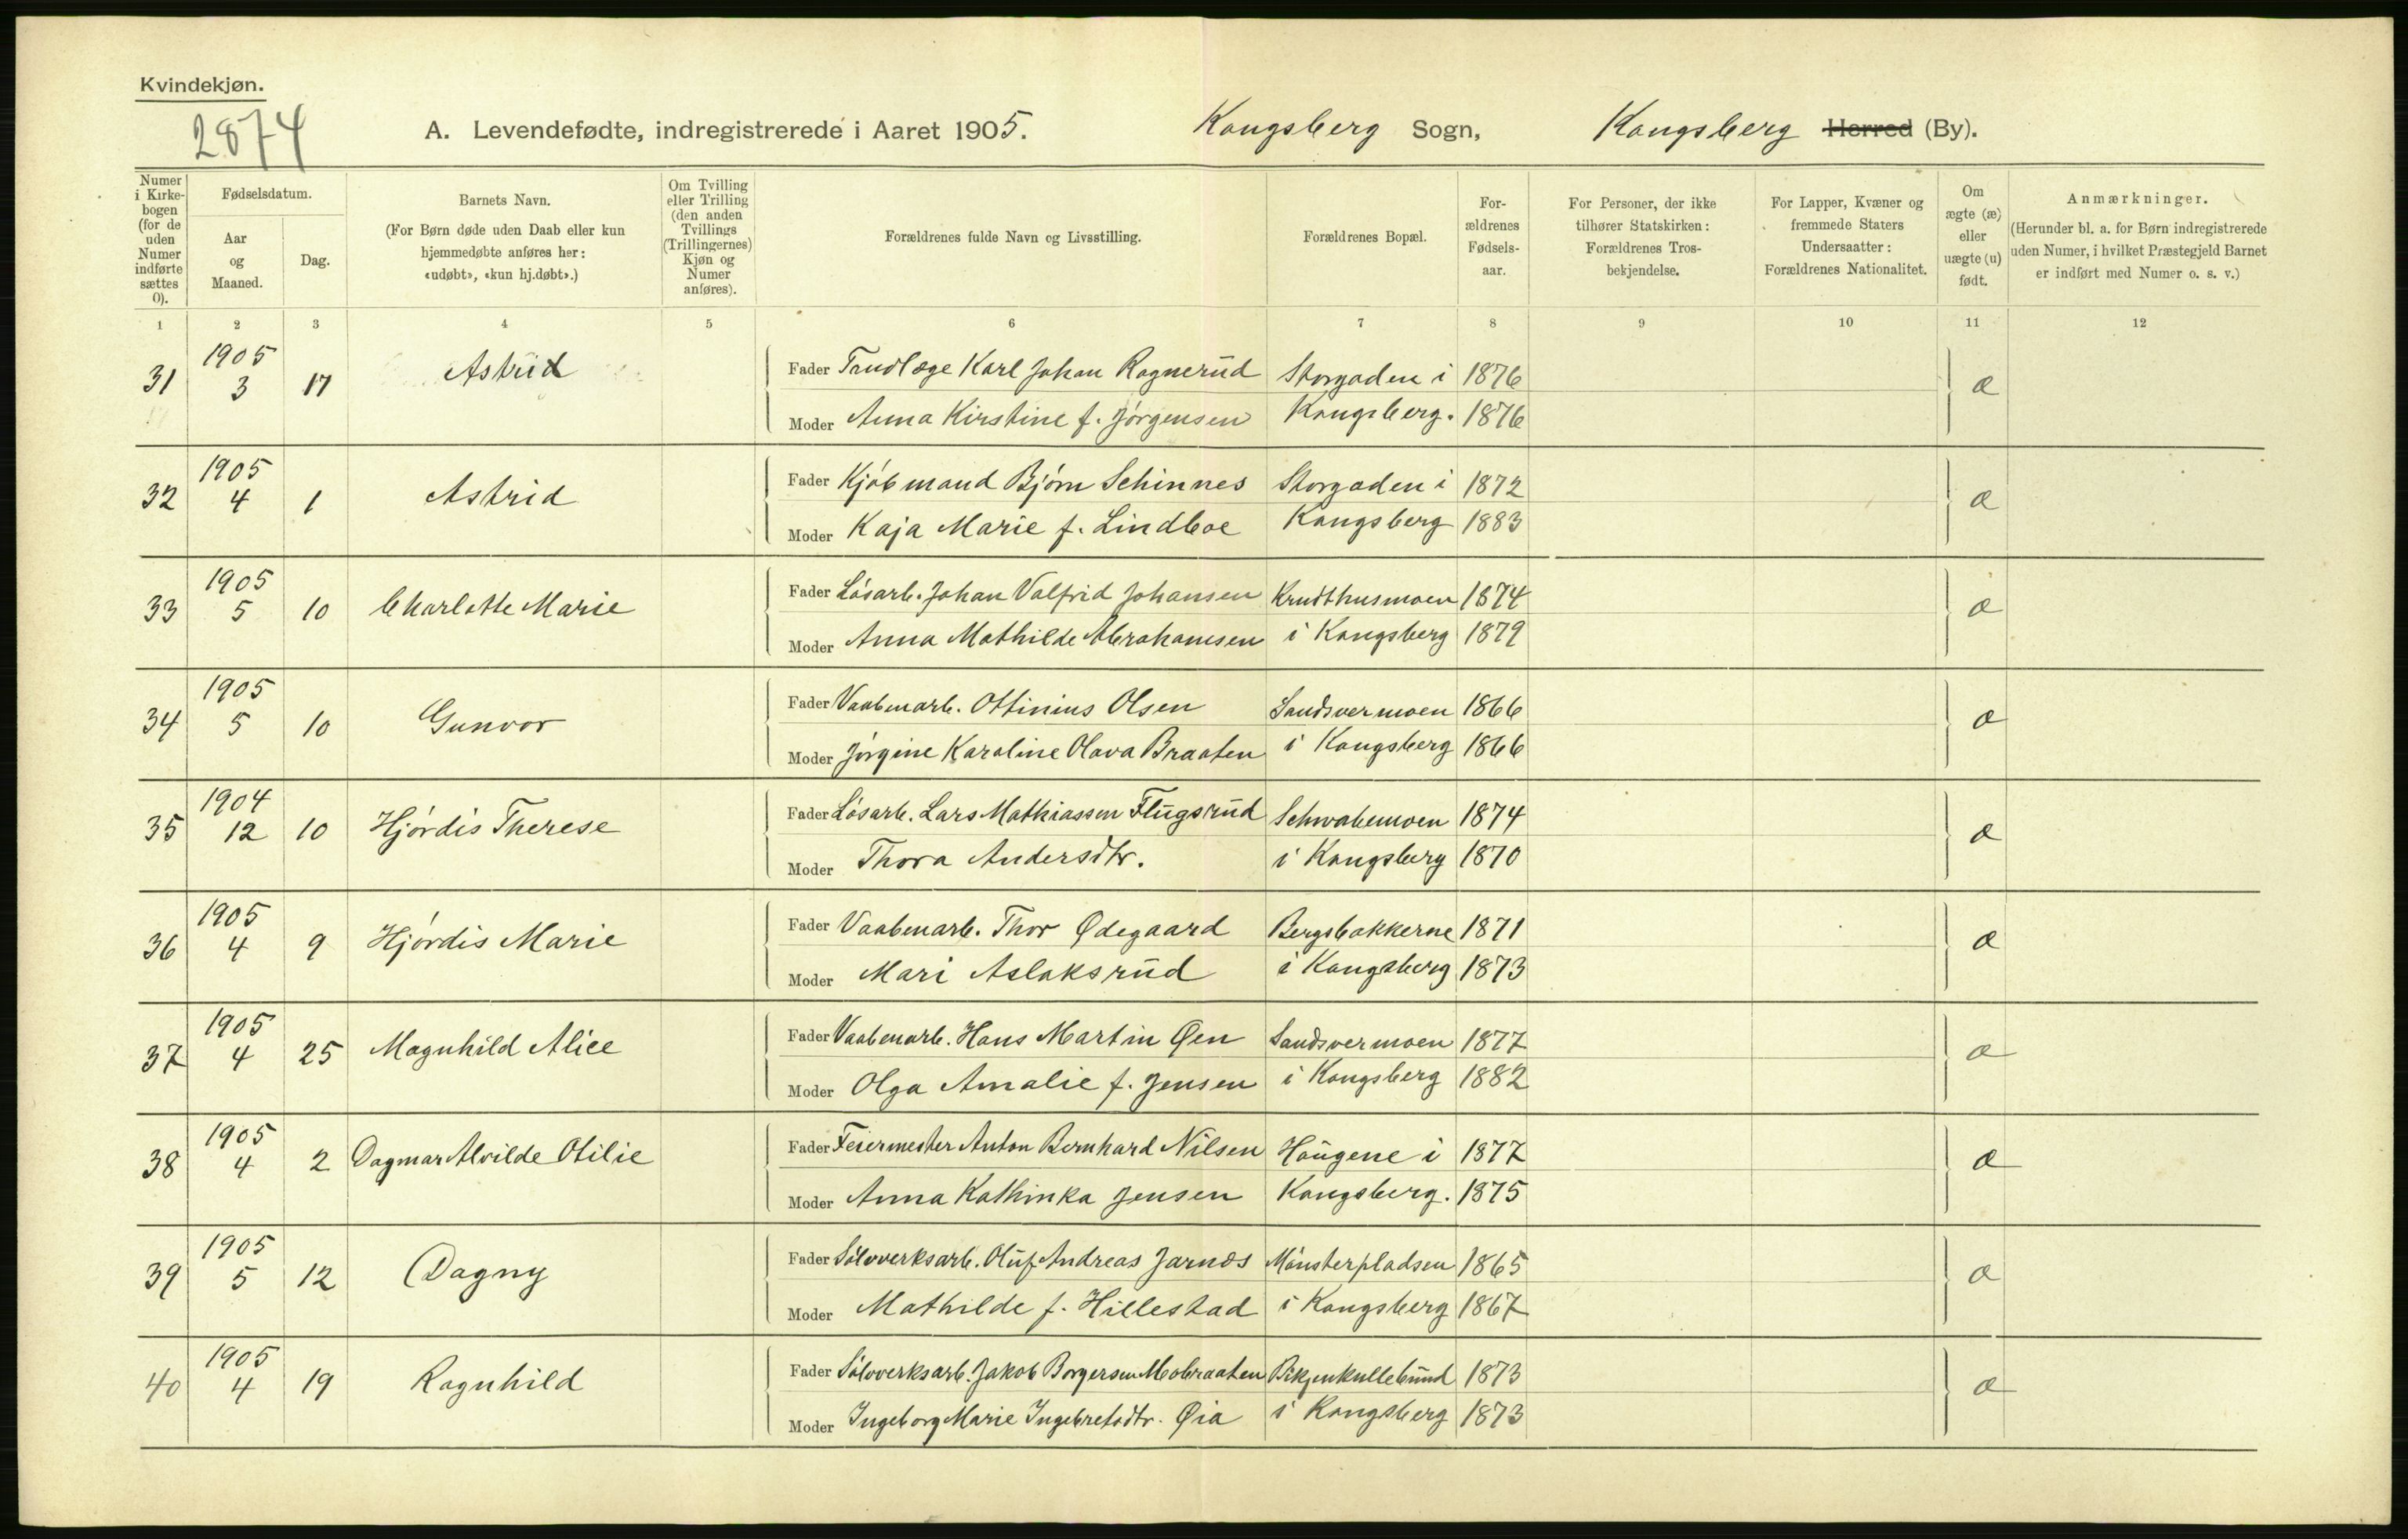 Kvindekjøn.
2874
A. Levendefødte, indregistrerede i Aaret 1905. Kongsberg Sogn, Kongsberg Herred (By).
Numer i Kirkebogen (for de uden Numer indførte sættes 0).
Fødselsdatum.
Aar og Maaned.
Dag.
Barnets Navn.
(For Børn døde uden Daab eller kun hjemmedøbte anføres her: «udøbt», «kun hj.døbt».)
Om Tvilling eller Trilling (den anden Tvillings (Trillingernes) Kjøn og Numer anføres).
Forældrenes fulde Navn og Livsstilling.
Forældrenes Bopæl.
Forældrenes Fødselsaar.
For Personer, der ikke tilhører Statskirken: Forældrenes Trosbekjendelse.
For Lapper, Kvæner og fremmede Staters Undersaatter: Forældrenes Nationalitet.
Om ægte (æ) eller uægte (u) født.
Anmærkninger.
(Herunder bl. a. for Børn indregistrerede uden Numer, i hvilket Præstegjeld Barnet er indført med Numer o. s. v.)
1 2 3 4 5 6 7 8 9 10 11 12
31 1905 3 17 Astrid Fader Tandlæge Karl Johan Ragnerud Storgaden i 1876 æ
Moder Anna Kirstine f. Jørgensen Kongsberg. 1876
32 1905 4 1 Astrid Fader Kjøbmand Bjørn Schinnes Storgaden i 1872 æ
Moder Kaja Marie f. Lindboe Kongsberg 1883
33 1905 5 10 Charlotte Marie Fader Løsarb. Johan Valfrid Johansen Krudthusmoen 1874 æ
Moder Anna Mathilde Abrahamsen i Kongsberg 1879
34 1905 5 10 Gunvor Fader Vaabenarb. Ottinius Olsen Sandsvermoen 1866 æ
Moder Jørgine Karoline Olava Braaten i Kongsberg 1866
35 1904 12 10 Hjørdis Therese Fader Løsarb. Lars Mathiassen Flugsrud Schwabemoen 1874 æ
Moder Thora Andersdtr. i Kongsberg 1870
36 1905 4 9 Hjørdis Marie Fader Vaabenarb. Thor Ødegaard Bergsbakkerne 1871 æ
Moder Mari Aslaksrud i Kongsberg 1873
37 1905 4 25 Magnhild Alice Fader Vaabenarb. Hans Martin Øen Sandsvermoen 1877 æ
Moder Olga Amalie f. Jensen i Kongsberg 1882
38 1905 4 2 Dagmar Alvilde Otilie Fader Feiermester Anton Bernhard Nilsen Haugene i 1877 æ
Moder Anna Kathinka Jensen Kongsberg. 1875
39 1905 5 12 Dagny Fader Sølvverksarb. Oluf Andreas Jarnæs Mønsterpladsen 1865 æ
Moder Mathilde f. Hillestad i Kongsberg 1867
40 1905 4 19 Ragnhild Fader Sølvverksarb. Jakob Borgersen Mobraaten 1873 æ
Moder Ingeborg Marie Ingebretsdtr. Øia i Kongsberg 1873